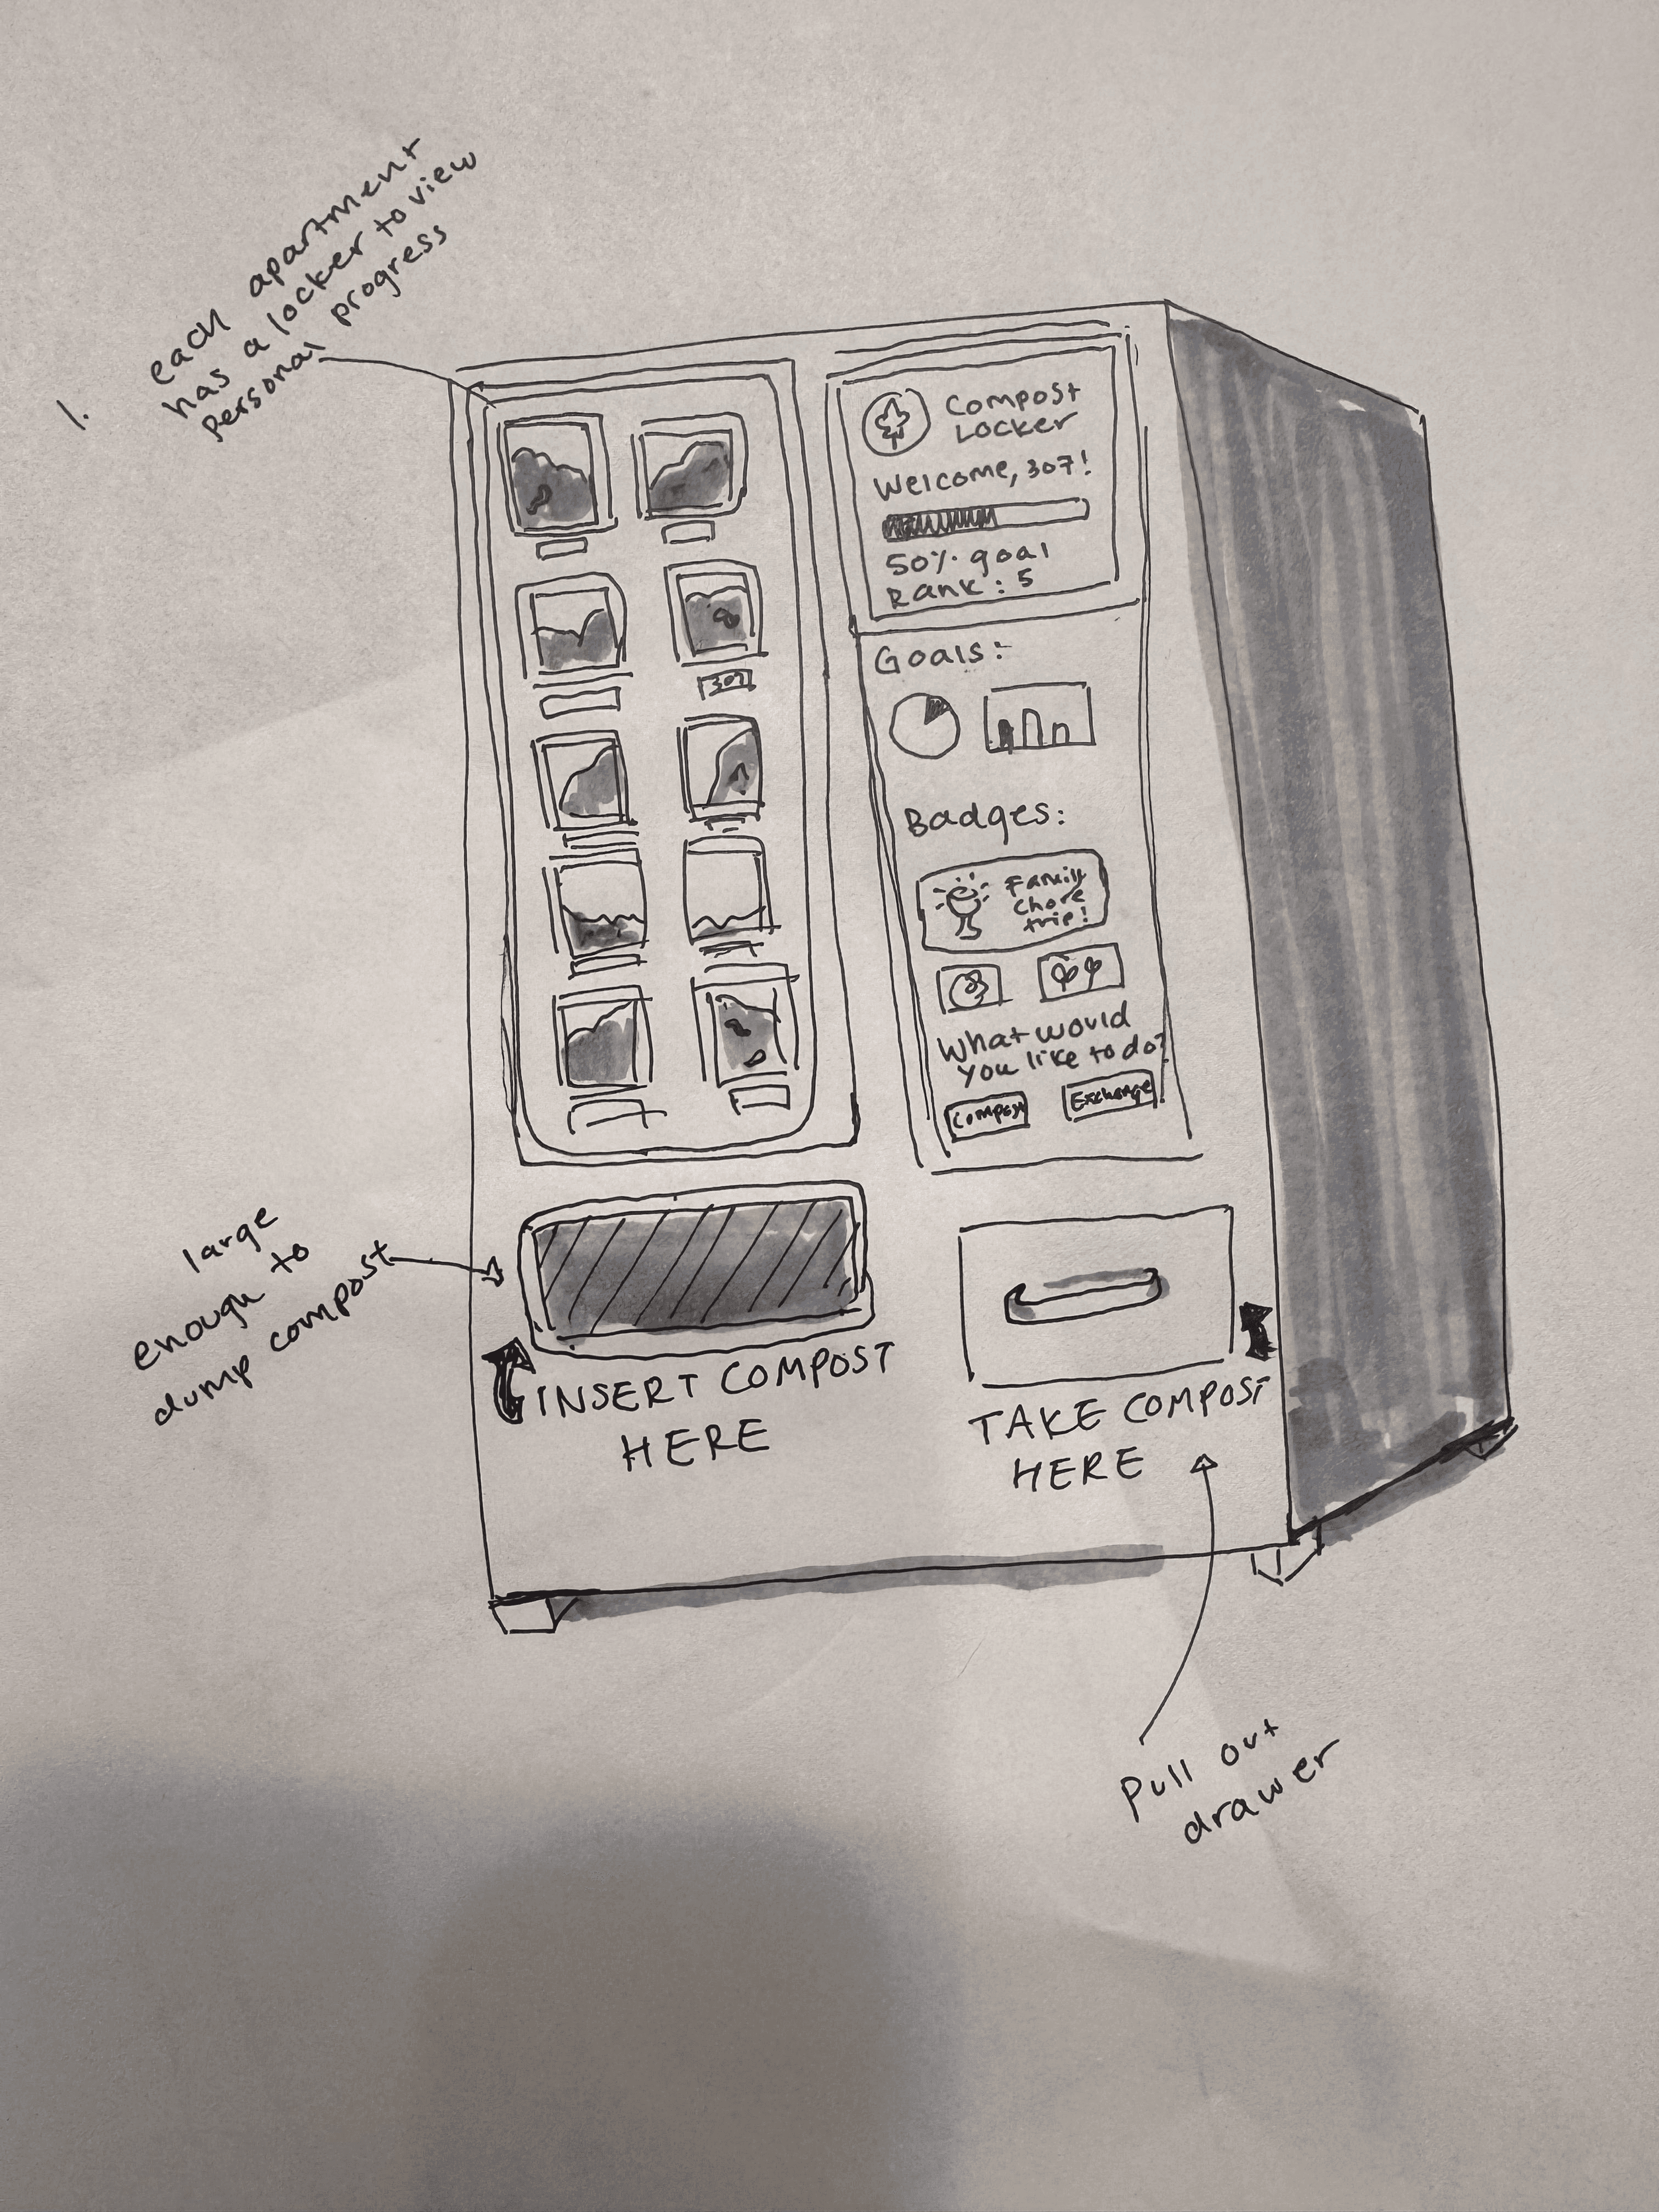 1.
each apartment
has a locker to view
personal progress
Compost
Locker
Welcome, 307!
50% goal
Rank: 5
307
Goals:
Badges:
Family
chore
trip!
What would
you like to do?
Compost
Exchange
large
enough to
dump compost
INSERT COMPOST
HERE
TAKE COMPOST
HERE
Pull out
drawer